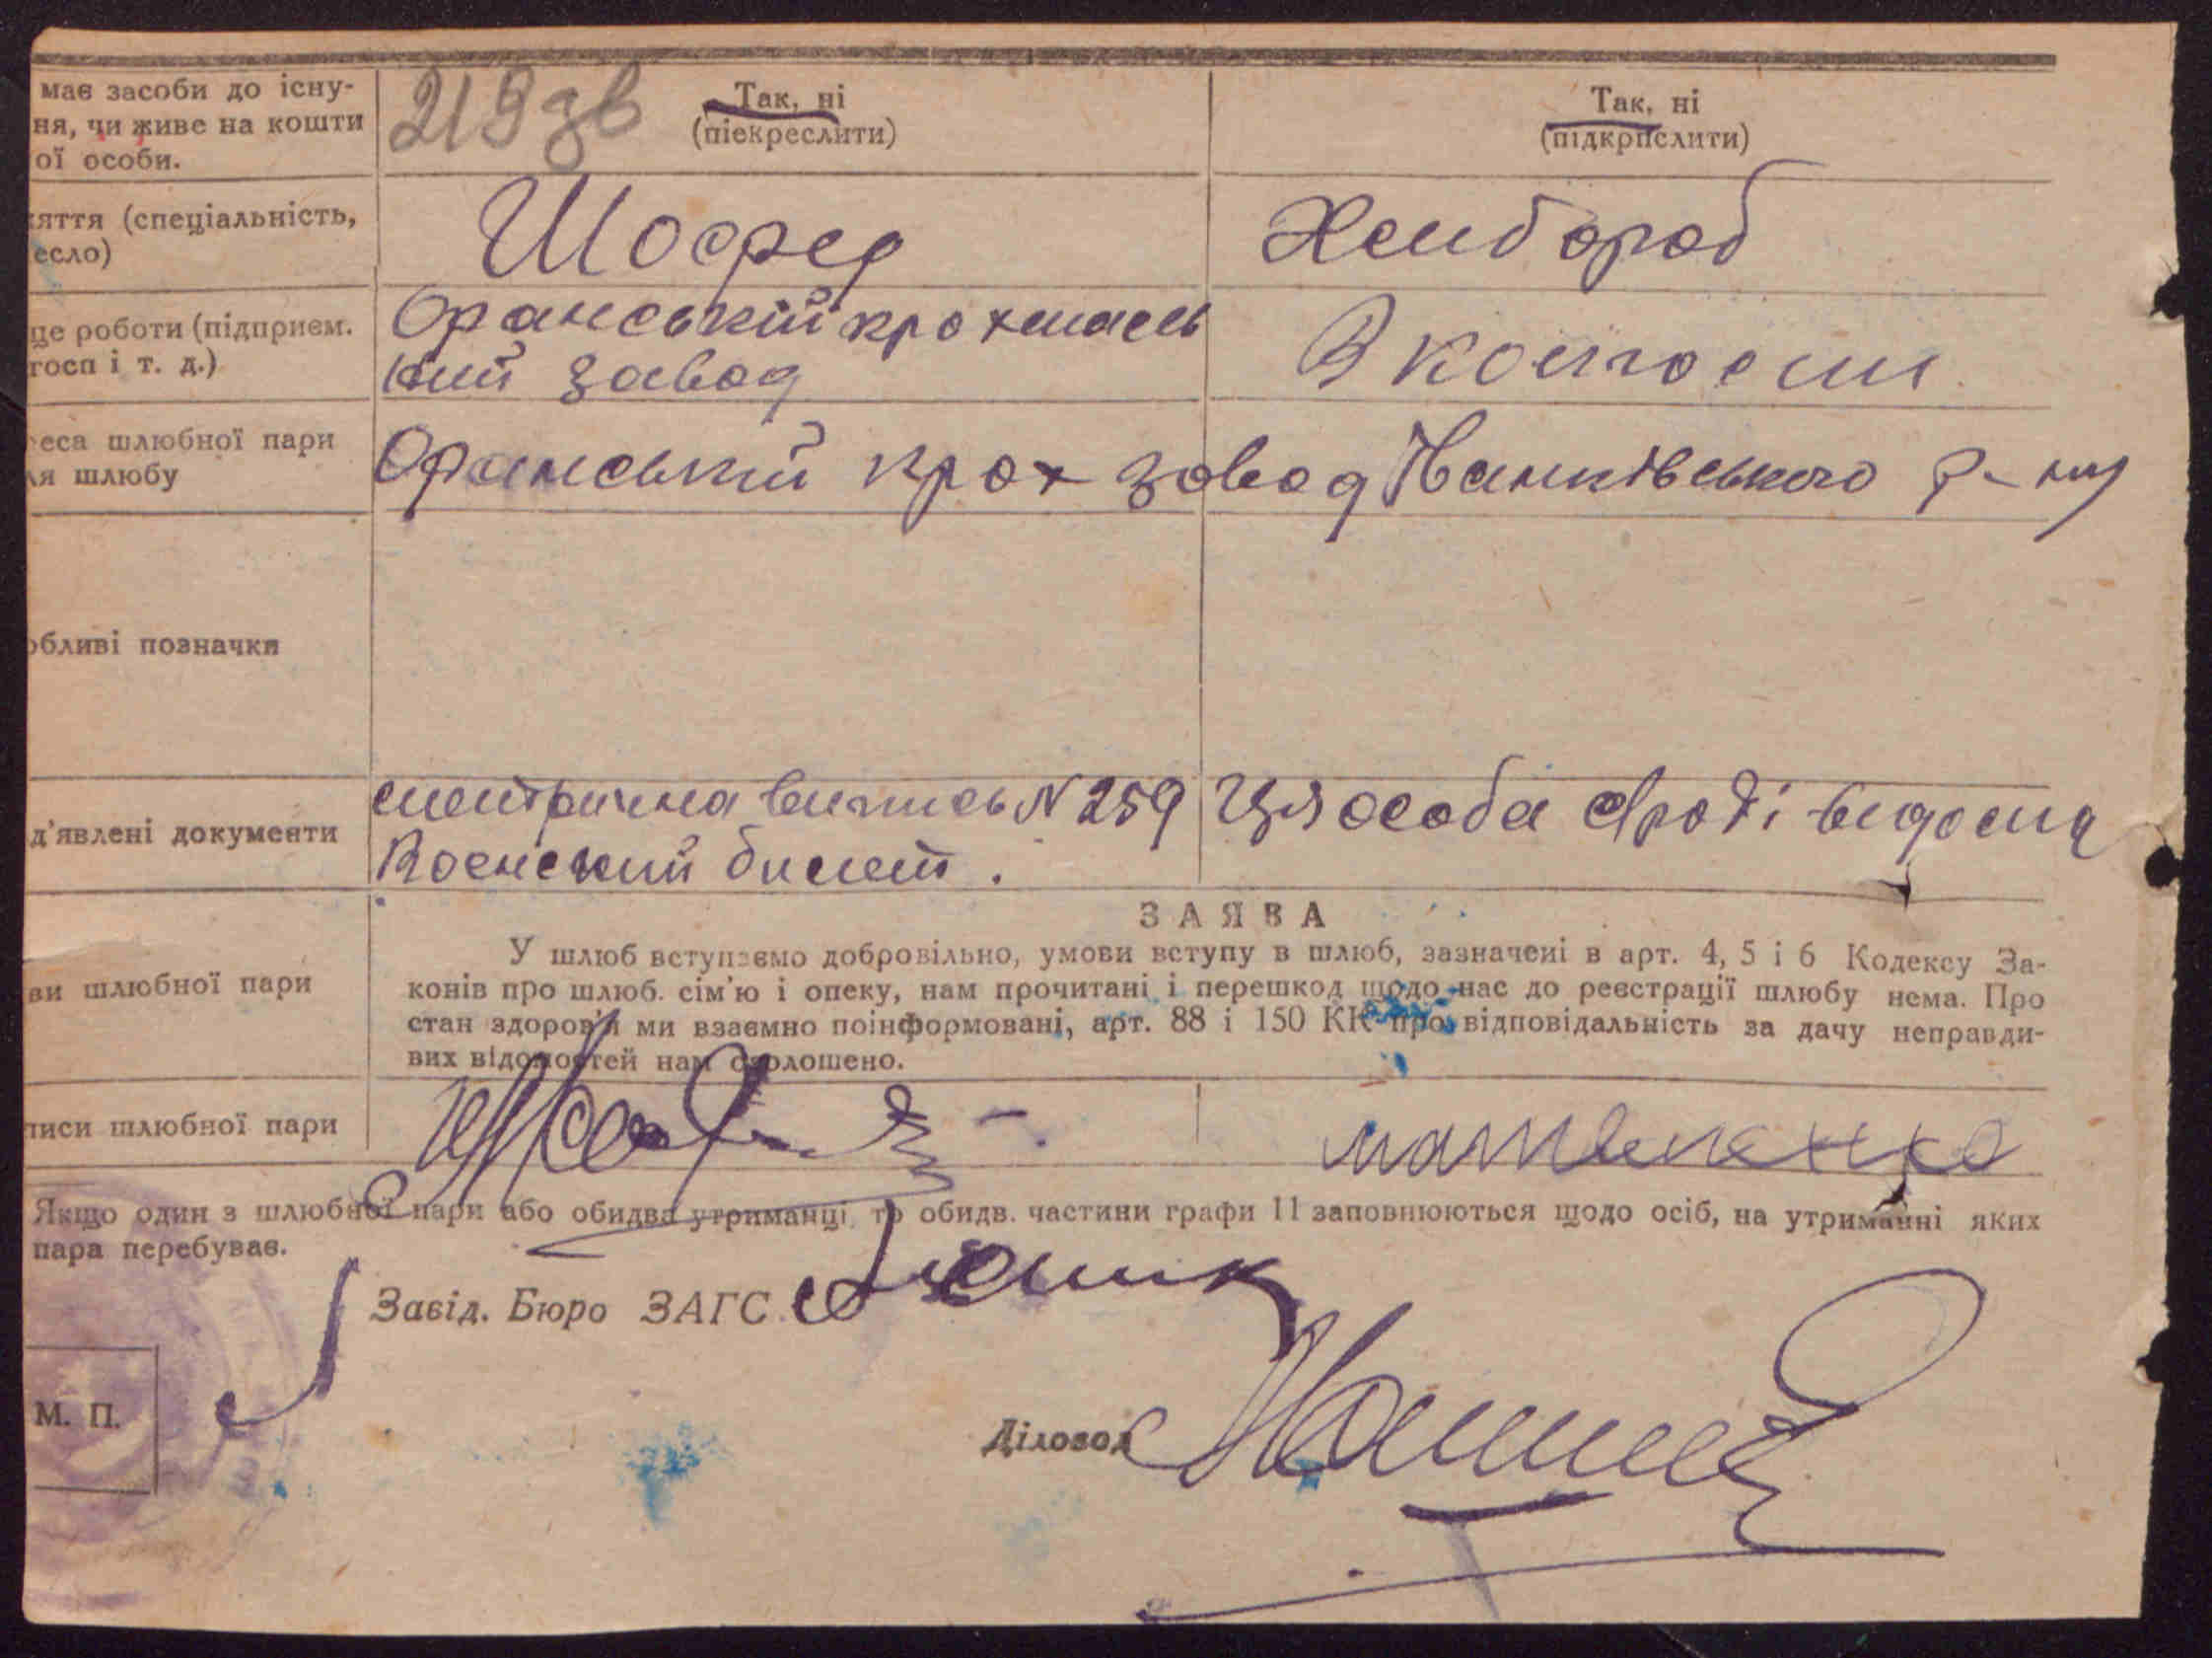 має засоби до існу-
ня, чи живе на кошти
ої особи.
219 зв
Так, ні
(піекреслити)
Так, ні
(підкрпслити)
яття (спеціальність,
есло)
Шофер
Хлибороб
це роботи (підприєм.
госп і т. д.)
Оранський крохмаль
ний завод
В колгоспи
еса шлюбної пари
ля шлюбу
Оранський крох завод Іванківського р-ну
обливі позначки
д'явлені документи
метрична випись N 259
Воєнский билет.
Ця особа с/раді відома
ЗАЯВА
ви шлюбної пари
У шлюб вступаємо добровільно, умови вступу в шлюб, зазначені в арт. 4, 5 і 6 Кодексу За-
конів про шлюб. сім'ю і опеку, нам прочитані і перешкод щодо нас до реєстрації шлюбу нема. Про
стан здоров'я ми взаємно поінформовані, арт. 88 і 150 КК про відповідальність за дачу неправди-
вих відомостей нам оголошено.
писи шлюбної пари
Якщо один з шлюбної пари або обидва утриманці, то обидв. частини графи 11 заповнюються щодо осіб, на утриманні яких
пара перебуває.
Завід. Бюро ЗАГС
М. П.
Діловод